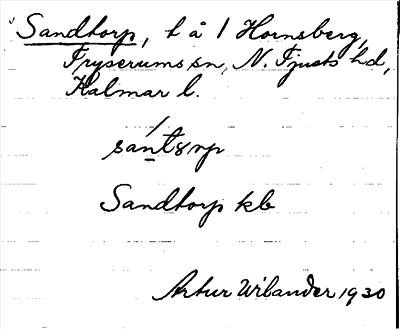 Sandtorp, t å 1 Hornsberg,
Fryserums sn, N. Tjusts hd,
Kalmar l.
Sandtorp kb
Artur Wilander 1930